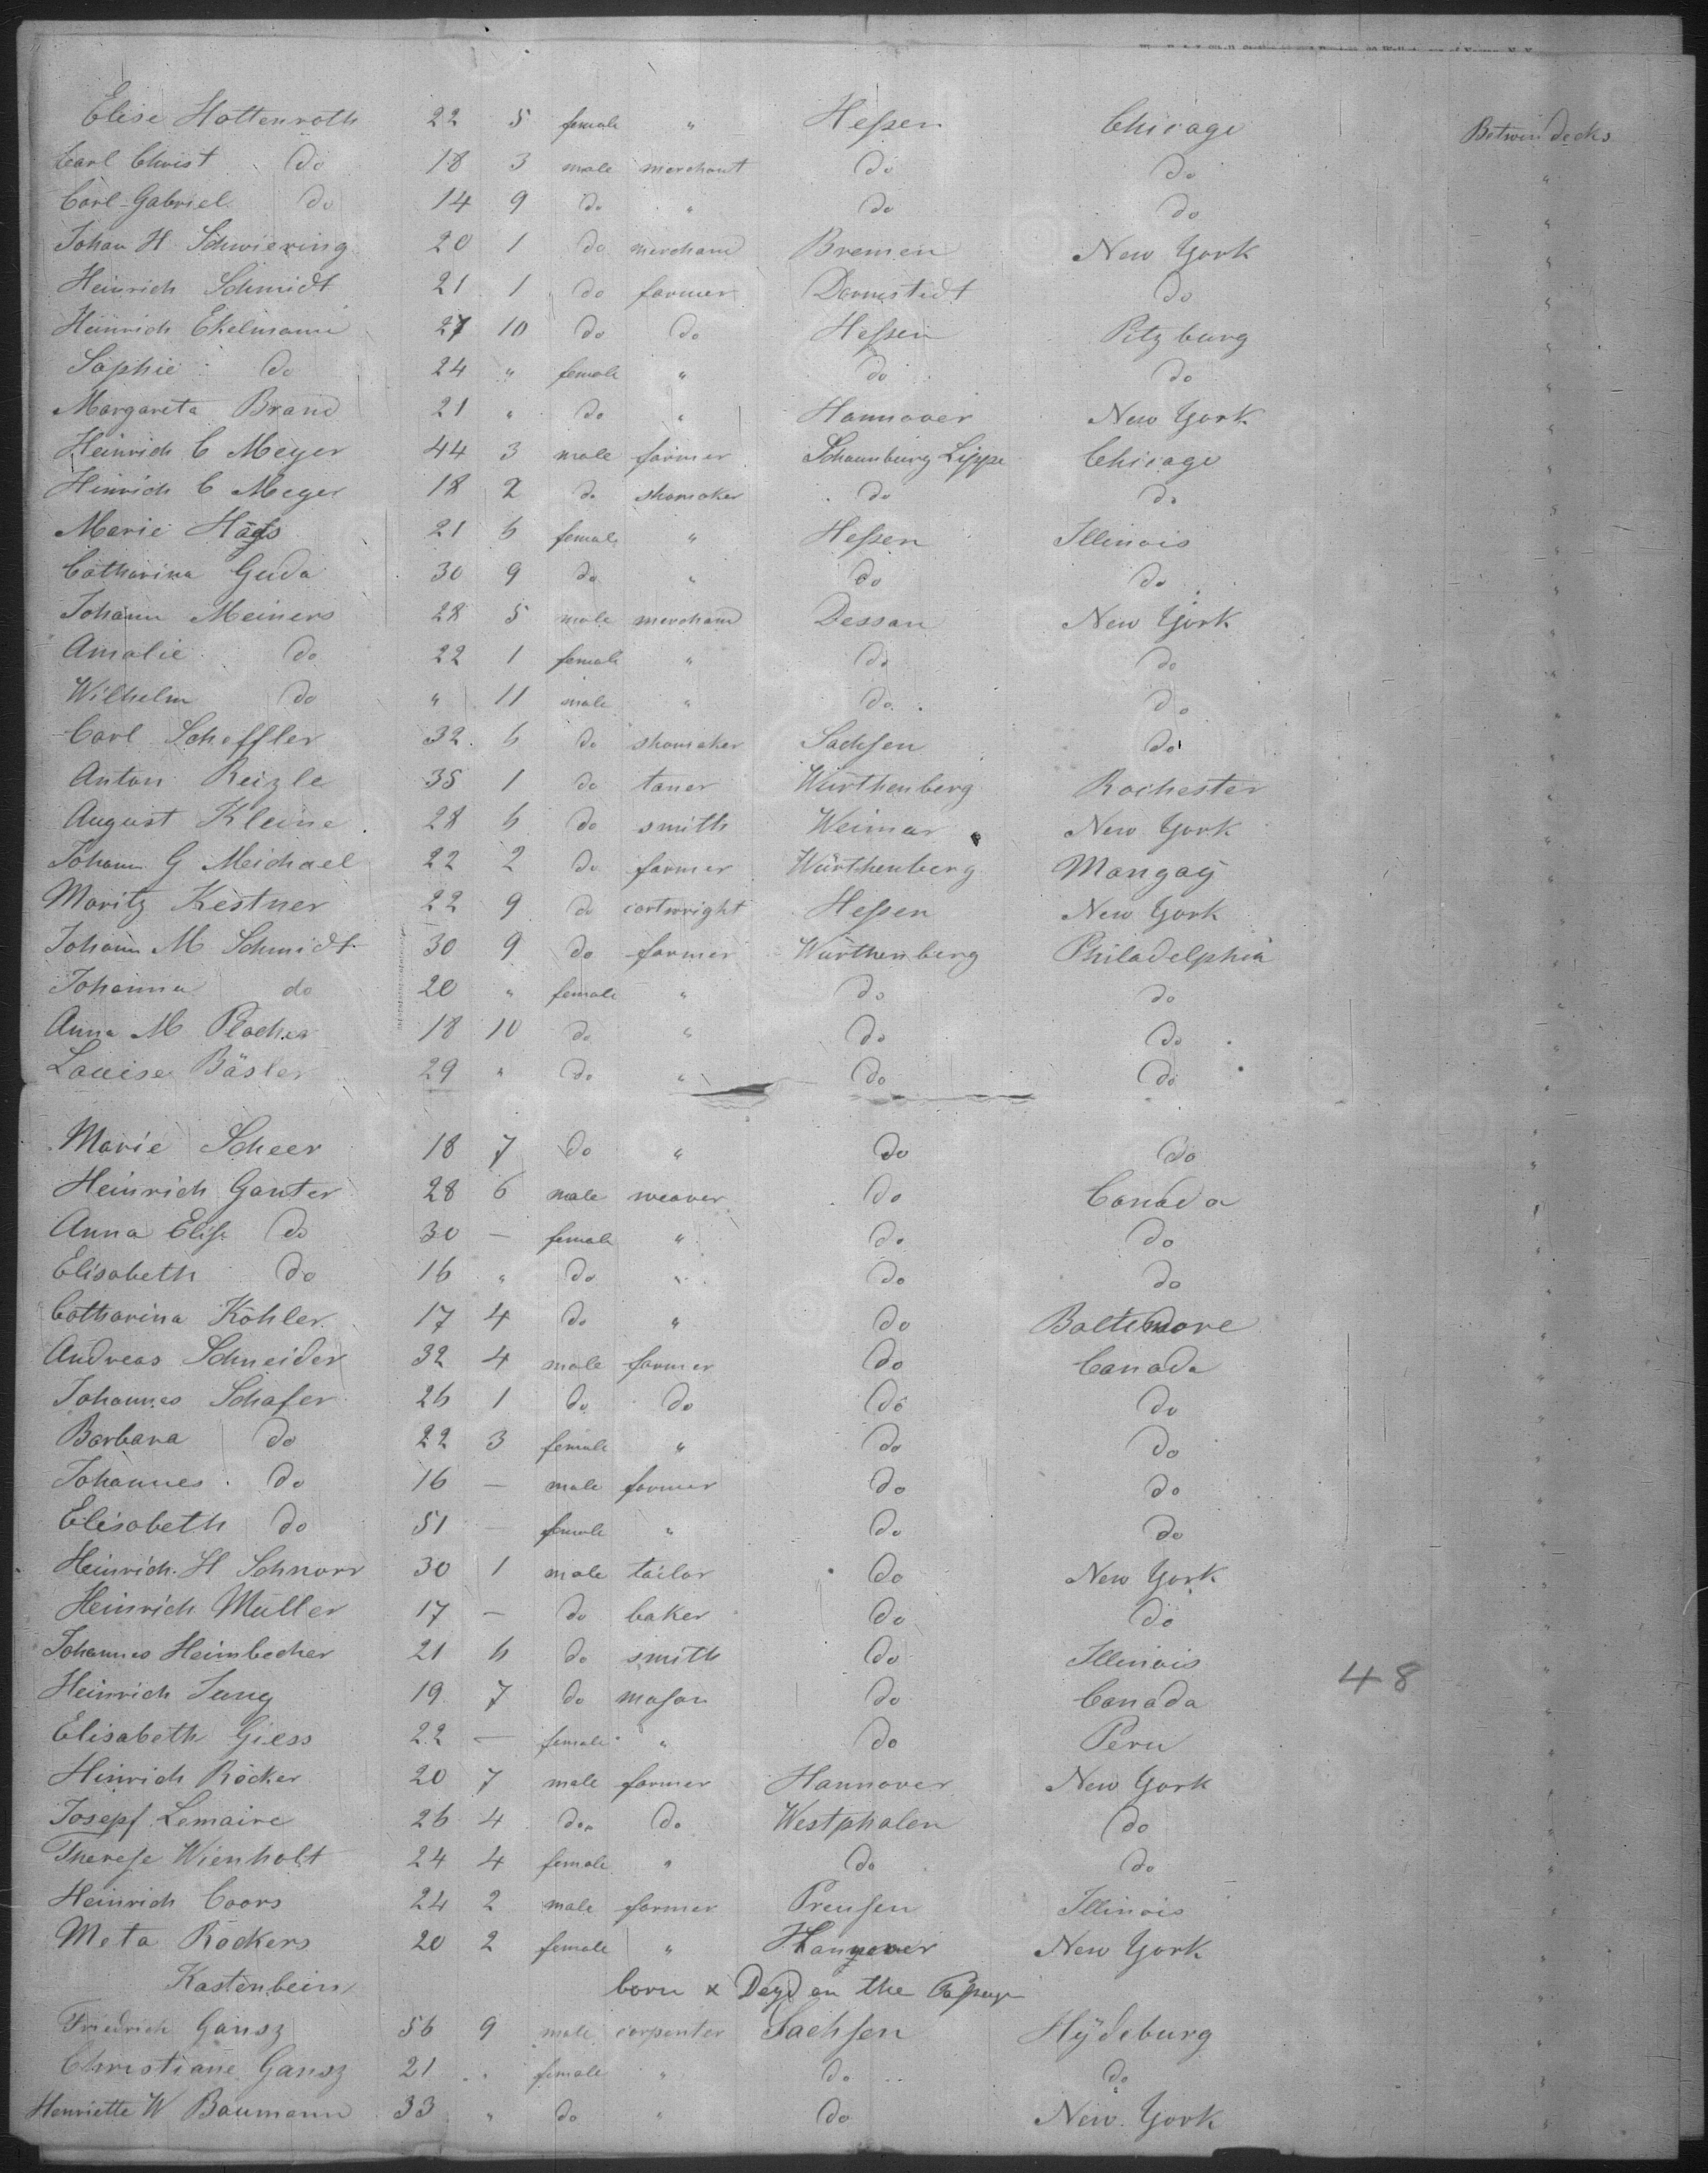 Elise Hottenroth 22 5 female " Heßen Chicago Betwen decks
Carl Christ do 18 3 male merchant do do "
Carl Gabriel do 14 9 do " do do "
Johan H Schwiering 20 1 do merchand Bremen New York "
Heinrich Schmidt 21 1 do farmer Darmstedt do "
Heinrich Ekelmann 27 10 do do Heßen Pitzburg "
Sophie do 24 " female " do do "
Margareta Brand 21 " do " Hannover New York "
Heinrich C Meyer 44 3 male farmer Schaumburg Lippe Chicago "
Heinrich C Meyer 18 2 do shomaker do do "
Marie 21 6 female " Heßen Illinois "
Catharina Guda 30 9 do " do do "
Johann Meiners 28 5 male merchand Dessau New York "
Amalie do 22 1 female " do do "
Wilhelm do " 11 male " do do "
Carl Scheffler 32 6 do shomaker Sachsen do "
Anton Reizle 35 1 do taner Würthenberg Rochester "
August Kleine 28 6 do smith Weimar New York "
Johann G Meichael 22 2 do farmer Würthenberg Mangag "
Moritz Kestner 22 9 do cartwright Heßen New York "
Johann M Schmidt 30 9 do farmer Würthenberg Philadelphia "
Johanna do 20 " female " do do "
Anna M 18 10 do " do do "
Louise Bäsler 29 " do " do do "
Marie Scheer 18 7 do " do do "
Heinrich Ganter 28 6 male weaver do Canada "
Anna Elise do 30 — female " do do "
Elisabeth do 16 " do " do do "
Catharina Köhler 17 4 do " do Baltimore "
Andreas Schneider 32 4 male farmer do Canada "
Johannes Schafer 26 1 do do do do "
Barbara do 22 3 female " do do "
Johannes do 16 — male farmer do do "
Elisabeth do 51 — female " do do "
Heinrich H Schnorr 30 1 male tailor do New York "
Heinrich Muller 17 — do baker do do "
Johannes Heimbecher 21 6 do smith do Illinois "
Heinrich Jung 19 7 do mason do Canada 48 "
Elisabeth Giess 22 — female " do Peru "
Heinrich Röcker 20 7 male farmer Hannover New York "
Josepf Lemaire 26 4 do do Westphalen do "
Therese Wienholt 24 4 female " do do "
Heinrich Coors 24 2 male farmer Preusen Illinois "
Meta Röckers 20 2 female " Hannover New York "
Kastenbein born & Deyd on the Passage "
Friedrich Gansz 56 9 male carpenter Sachsen Hÿdeburg "
Christiane Gansz 21 " female " do do "
Henriette W Baumann 33 " do " do New York "